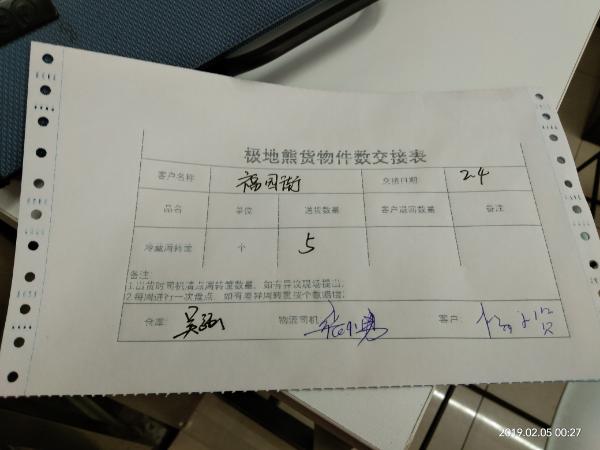 极地熊货物件数交接表
客户名称 福园街 交接日期 2.4
品名 单位 送货数量 客户退回数量 备注
冷藏周转筐 个 5
备注:
1.出货时司机清点周转筐数量，如有异议现场提出;
2.每周进行一次盘点，如有差异周转筐按个数赔偿;
仓库: 物流司机: 客户:
2019.02.05 00:27